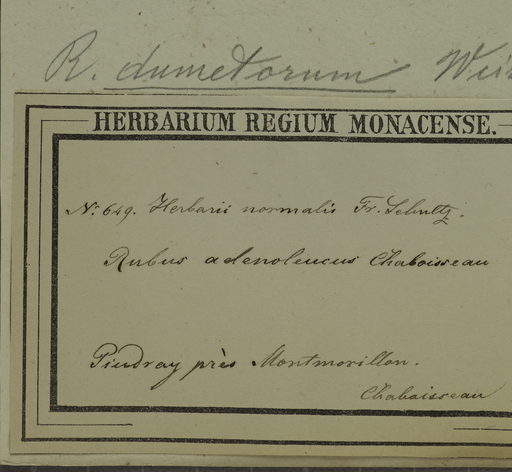 R. dumetorum
HERBARIUM REGIUM MONACENSE.
No: 649. Herbarii normalis Fr. Schultz.
Rubus adenoleucus Chaboisseau
Pindray près Montmorillon.
Chaboisseau